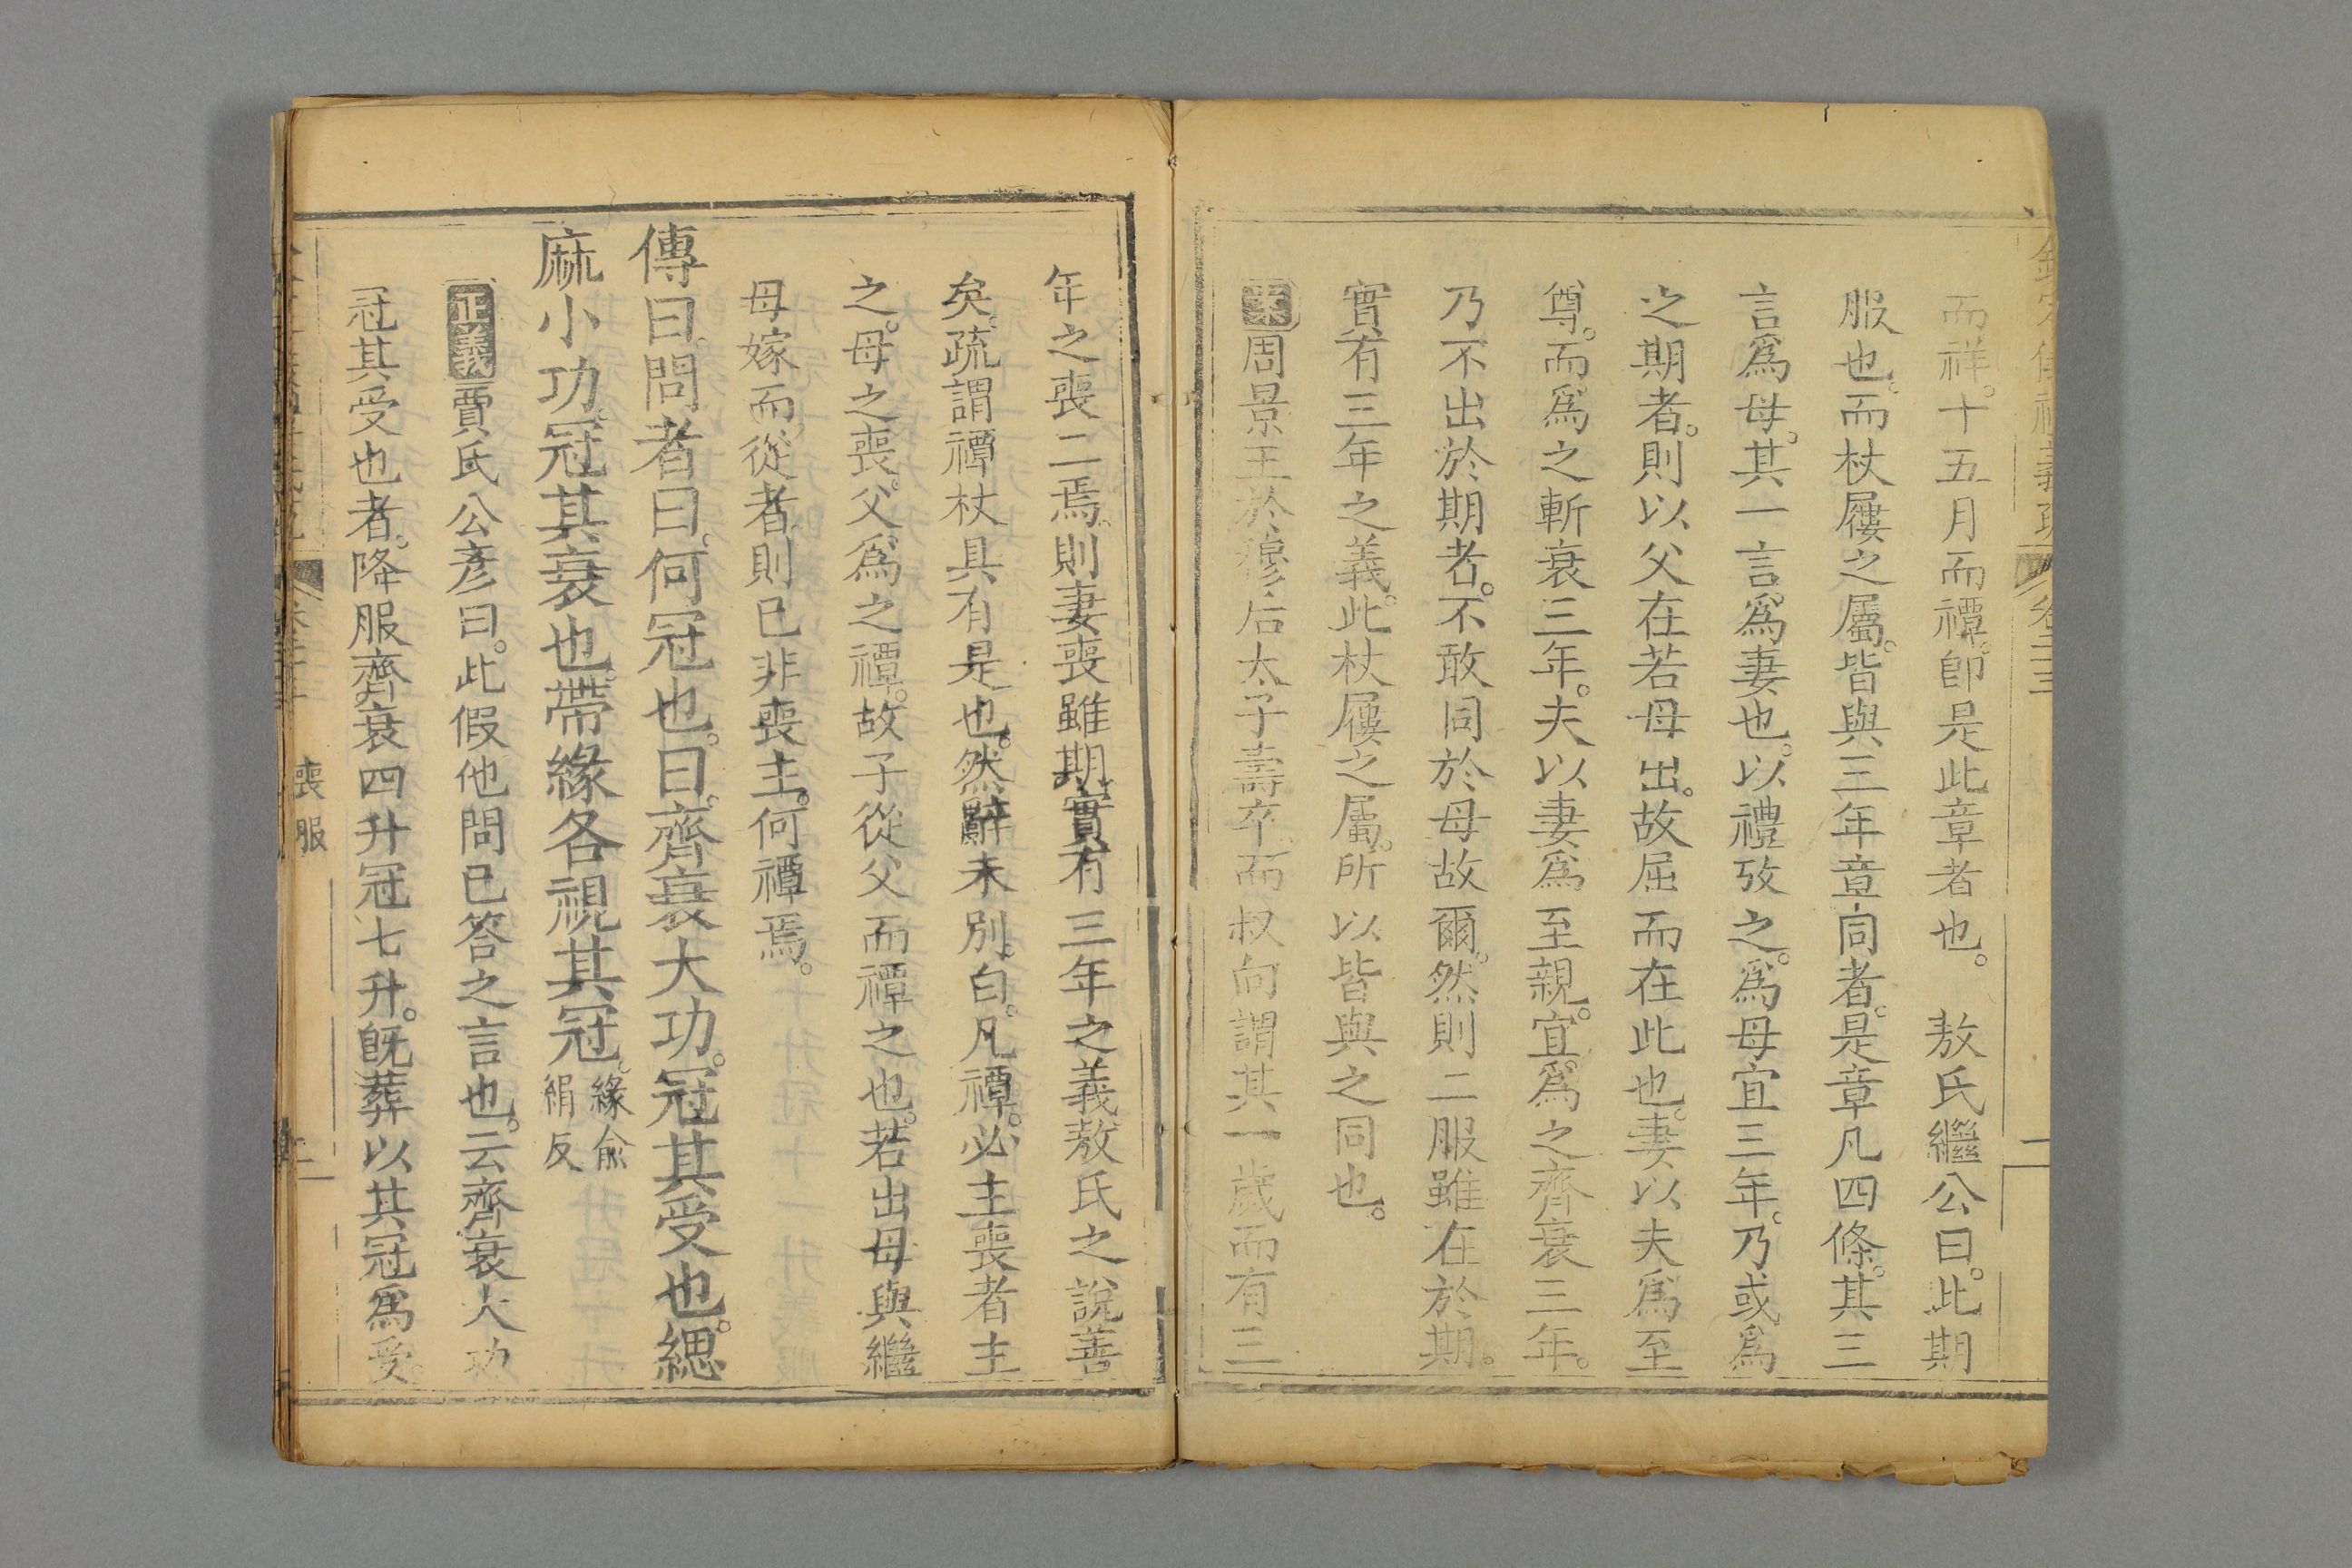 而祥。十五月而禫。卽是此章者也。　敖氏繼公曰。此期
服也。而杖屨之屬。皆與三年章同者。是章凡四條。其三
言爲母。其一言爲妻也。以禮攷之。爲母宜三年。乃或爲
之期者。則以父在若母出。故屈而在此也。妻以夫爲至
尊。而爲之斬衰三年。夫以妻爲至親。宜爲之齊衰三年。
乃不出於期者。不敢同於母故爾。然則二服雖在於期。
實有三年之義。此杖屨之屬。所以皆與之同也。
案周景王於穆后太子壽卒。而叔向謂其一歲而有三
年之喪二焉。則妻喪雖期。實有三年之義。敖氏之說善
矣。疏謂禫杖具有是也。然辭未別白。凡禫。必主喪者主
之。母之喪。父爲之禫。故子從父而禫之也。若出母與繼
母嫁而從者。則已非喪主。何禫焉。
傳曰。問者曰。何冠也。曰。齊衰大功。冠其受也。緦
麻小功。冠其衰也。帶緣各視其冠。緣俞絹反
正義賈氏公彥曰。此假他問已答之言也。云齊衰大功
冠其受也者。降服齊衰四升冠七升。旣葬以其冠爲受
喪服
二